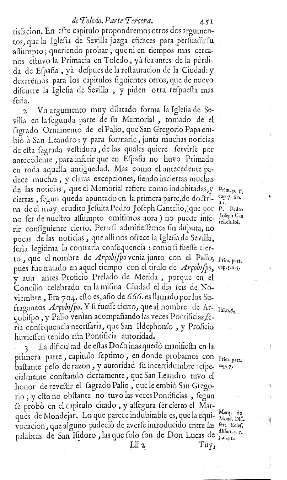 de Toledo. Parte Tercera. 451
tisfacion. En este capitulo propondremos otros dos argumen-
tos, que la Iglesia de Sevilla juzga eficaces para persuadir su
assumpto; queriendo probar, que ni en tiempos mas cerca-
nos estuvo la Primacia en Toledo, yà sea antes de la pérdi-
da de España, yà despues de la restauracion de la Ciudad: y
daremos para los capitulos siguientes otros, que de nuevo
discurre la Iglesia de Sevilla, y piden otra respuesta mas
seria.
2 Vn argumento muy dilatado forma la Iglesia de Se-
villa en la segunda parte de su Memorial, tomado de el
sagrado Ornamento de el Palio, que San Gregorio Papa em-
biò à San Leandro: y para formarle, junta muchas noticias
de esta sagrada vestidura, de las quales quiere servirse por
antecedente, para inferir que en España no huvo Primado
en toda aquella antiguedad. Mas como el antecedente pa-
dece muchas, y claras excepciones, siendo inciertas muchas
de las noticias, que el Memorial refiere como indubitadas, y
ciertas, segun queda apuntado en la primera parte, de doctri-
na de el muy erudito Jesuita Pedro Joseph Cancilio, (que por
no ser de nuestro assumpto omitimos aora) no puede infe-
rir consiguiente cierto. Pero si admitiessemos sin disputa, no
pocas de las noticias, que alli nos ofrece la Iglesia de Sevilla,
seria legitima la contraria consequencia: como si fuesse cier-
to, que el nombre de Arçobispo venia junto con el Palio,
pues fue tratado en aquel tiempo con el titulo de Arçobispo,
y aun antes Proficio Prelado de Merida, porque en el
Concilio celebrado en la misma Ciudad el dia seis de No-
viembre, Era 704. esto es, año de 666. es llamado por los Su-
fraganeos Arçobispo. Y si fuesse cierto, que al nombre de Ar-
çobispo, y Palio venian acompañando las veces Pontificias, se-
ria consequencia necessaria, que San Ildephonso, y Proficio
huviessen tenido esta Pontificia autoridad.
3 La dificultad de estas Doctrinas quedò manifiesta en la
primera parte, capitulo septimo, en donde probamos con
bastante peso de razon, y autoridad su incertidumbre espe-
cialmente constando ciertamente, que San Leandro tuvo el
honor de revestir el sagrado Palio, que le embiò San Grego-
rio; y esto no obstante no tuvo las veces Pontificias, segun
se probò en el capitulo citado, y assegura ser cierto el Mar-
quès de Mondejar. Lo que parece indubitable es, que la equi-
vocacion, que alguno padeciò de averse introducido entre las
palabras de San Isidoro, las que solo son de Don Lucas de
Lll 2 Tuy,
Prim. part.
cap. 7.